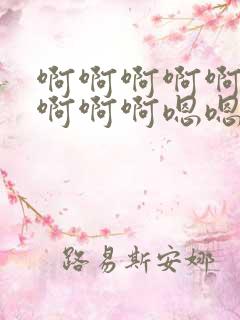 啊啊啊啊啊
啊啊啊嗯嗯
路易斯安娜